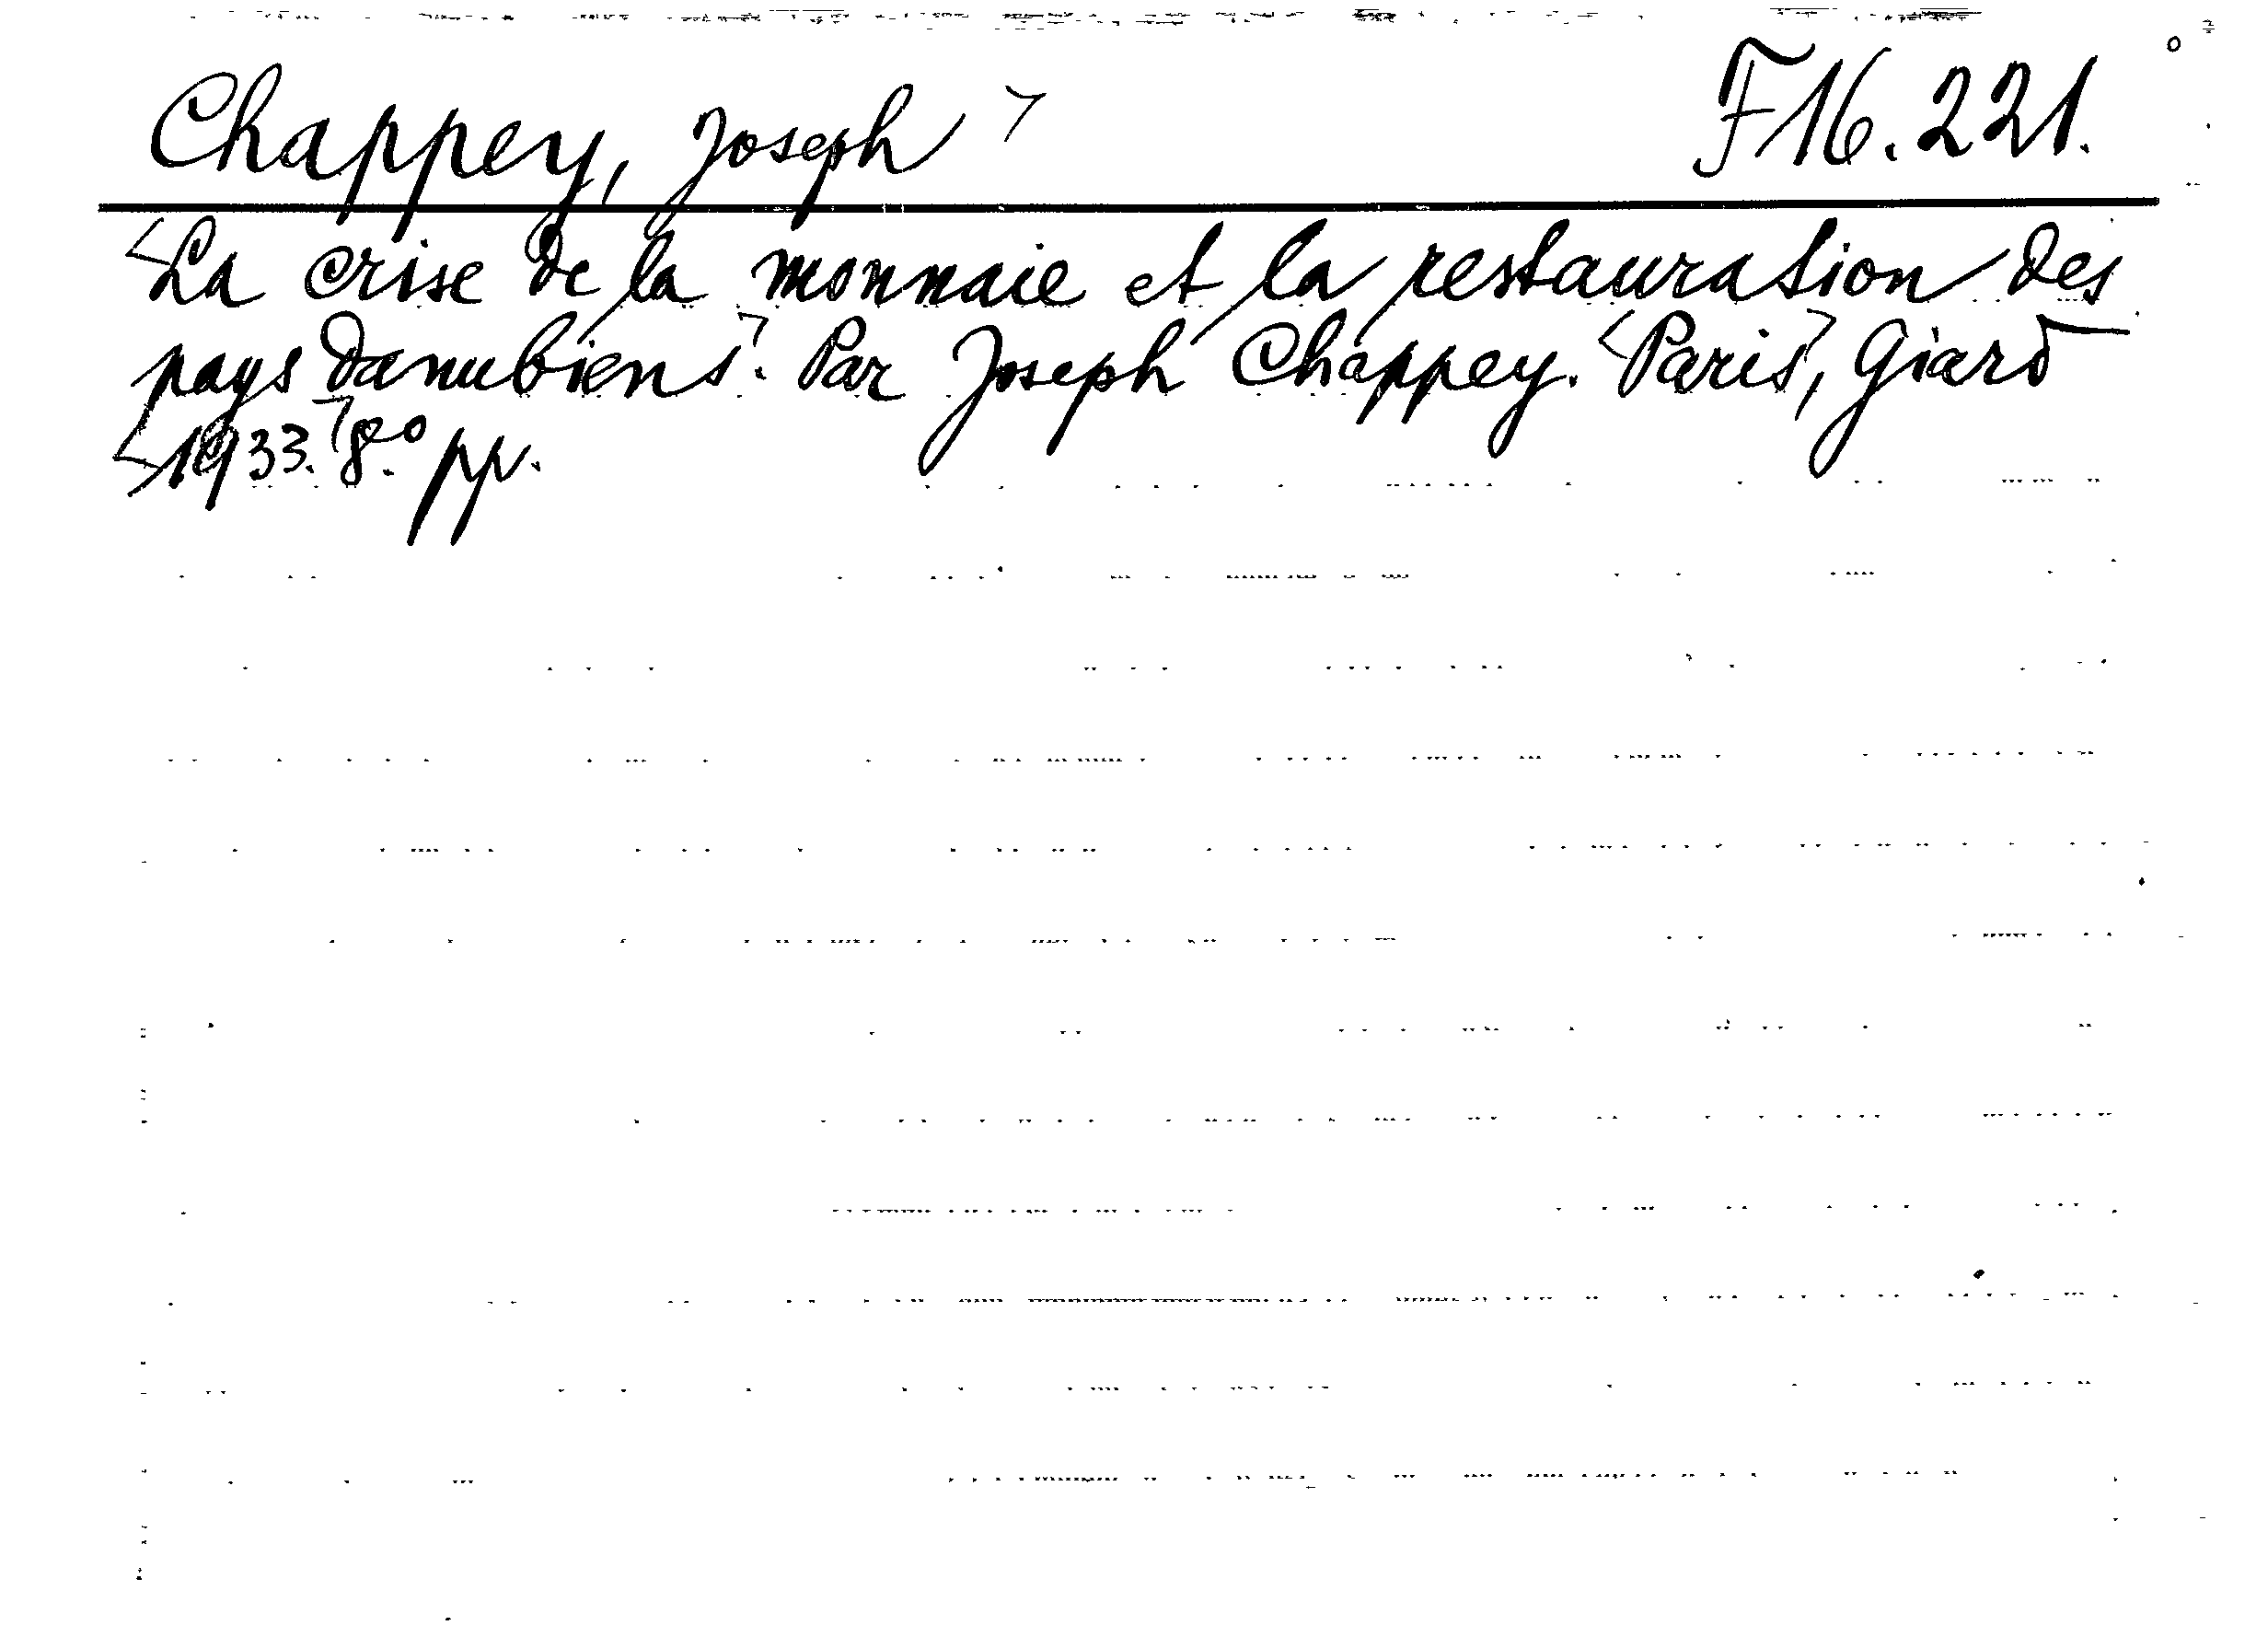 Chappey, Joseph F 16.221.
La crise de la monnaie et la restauration des
pays danubiens. Par Joseph Chappey. Paris, Giard
1933. 8.° pp.